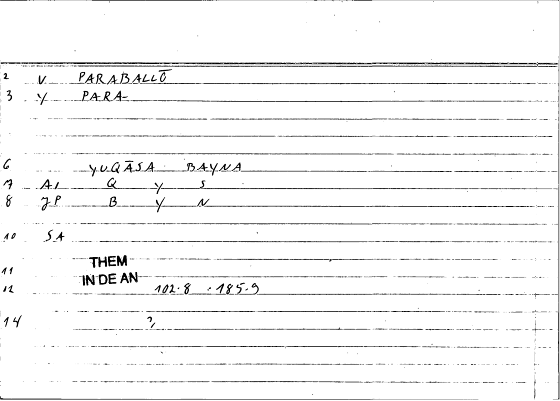 2 V PARABALLŌ
3 Y PARA-
6 YUQĀSA BAYNA
7 A1 Q Y S
8 JP B Y N
10 SA
11 THEM
12 IN DE AN 102.8 .185.9
14 ?,